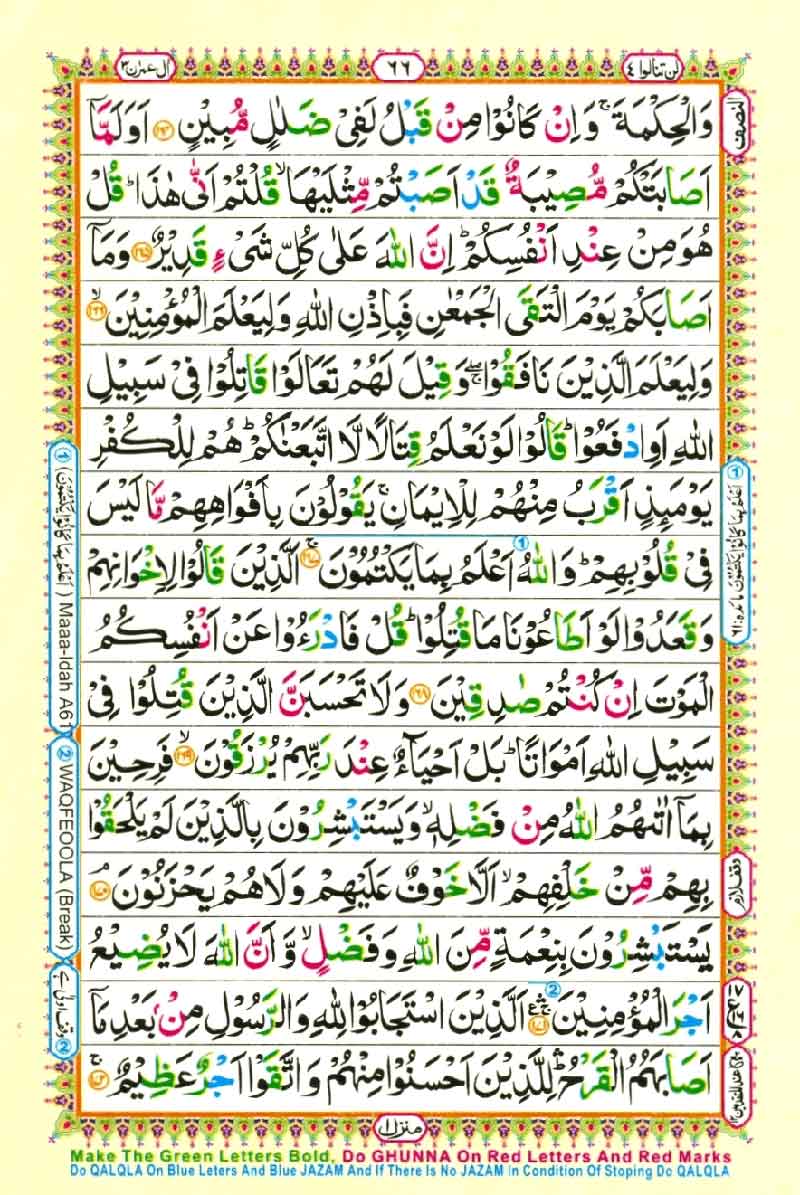 لن تنالوا ٤
٦٦
ال عمرٰن ٣
النصف
وَالْحِكْمَةَ ۚ وَاِنْ كَانُوْا مِنْ قَبْلُ لَفِیْ ضَلٰلٍ مُّبِیْنٍ ﴿۱۶۴﴾ اَوَلَمَّاۤ
اَصَابَتْكُمْ مُّصِیْبَةٌ قَدْ اَصَبْتُمْ مِّثْلَیْهَا ۙ قُلْتُمْ اَنّٰی هٰذَا ؕ قُلْ
هُوَ مِنْ عِنْدِ اَنْفُسِكُمْ ؕ اِنَّ اللّٰهَ عَلٰی كُلِّ شَیْءٍ قَدِیْرٌ ﴿۱۶۵﴾ وَمَاۤ
اَصَابَكُمْ یَوْمَ الْتَقَی الْجَمْعٰنِ فَبِاِذْنِ اللّٰهِ وَلِیَعْلَمَ الْمُؤْمِنِیْنَ ﴿۱۶۶﴾ ۙ
وَلِیَعْلَمَ الَّذِیْنَ نَافَقُوْا ۖۚ وَقِیْلَ لَهُمْ تَعَالَوْا قَاتِلُوْا فِیْ سَبِیْلِ
اللّٰهِ اَوِادْفَعُوْا ؕ قَالُوْا لَوْ نَعْلَمُ قِتَالًا لَّا اتَّبَعْنٰكُمْ ؕ هُمْ لِلْكُفْرِ
یَوْمَئِذٍ اَقْرَبُ مِنْهُمْ لِلْاِیْمَانِ ۚ یَقُوْلُوْنَ بِاَفْوَاهِهِمْ مَّا لَیْسَ
فِیْ قُلُوْبِهِمْ ؕ وَاللّٰهُ اَعْلَمُ بِمَا یَكْتُمُوْنَ ﴿۱۶۷﴾ ۚ اَلَّذِیْنَ قَالُوْا لِاِخْوَانِهِمْ
وَقَعَدُوْا لَوْ اَطَاعُوْنَا مَا قُتِلُوْا ؕ قُلْ فَادْرَءُوْا عَنْ اَنْفُسِكُمُ
الْمَوْتَ اِنْ كُنْتُمْ صٰدِقِیْنَ ﴿۱۶۸﴾ وَلَا تَحْسَبَنَّ الَّذِیْنَ قُتِلُوْا فِیْ
سَبِیْلِ اللّٰهِ اَمْوَاتًا ؕ بَلْ اَحْیَآءٌ عِنْدَ رَبِّهِمْ یُرْزَقُوْنَ ﴿۱۶۹﴾ ۙ فَرِحِیْنَ
بِمَاۤ اٰتٰىهُمُ اللّٰهُ مِنْ فَضْلِهٖ ۙ وَیَسْتَبْشِرُوْنَ بِالَّذِیْنَ لَمْ یَلْحَقُوْا
بِهِمْ مِّنْ خَلْفِهِمْ ۙ اَلَّا خَوْفٌ عَلَیْهِمْ وَلَا هُمْ یَحْزَنُوْنَ ﴿۱۷۰﴾ ۘ
یَسْتَبْشِرُوْنَ بِنِعْمَةٍ مِّنَ اللّٰهِ وَفَضْلٍ ۙ وَّاَنَّ اللّٰهَ لَا یُضِیْعُ
اَجْرَ الْمُؤْمِنِیْنَ ﴿۱۷۱﴾ ۚ اَلَّذِیْنَ اسْتَجَابُوْا لِلّٰهِ وَالرَّسُوْلِ مِنْۢ بَعْدِ مَاۤ
اَصَابَهُمُ الْقَرْحُ ۛؕ لِلَّذِیْنَ اَحْسَنُوْا مِنْهُمْ وَاتَّقَوْا اَجْرٌ عَظِیْمٌ ﴿۱۷۲﴾ ۚ
① اَعْلَمُ بِمَا كَانُوْا یَكْتُمُوْنَ مائده: ٦١
وقف لازم
① (اَعْلَمُ بِمَا كَانُوْا یَكْتُمُوْنَ) Maaa-Idah A61
② WAQFEOOLA (Break)
② وقف اولٰی
منزل ١
Make The Green Letters Bold, Do GHUNNA On Red Letters And Red Marks
Do QALQLA On Blue Leters And Blue JAZAM And If There Is No JAZAM In Condition Of Stoping Do QALQLA